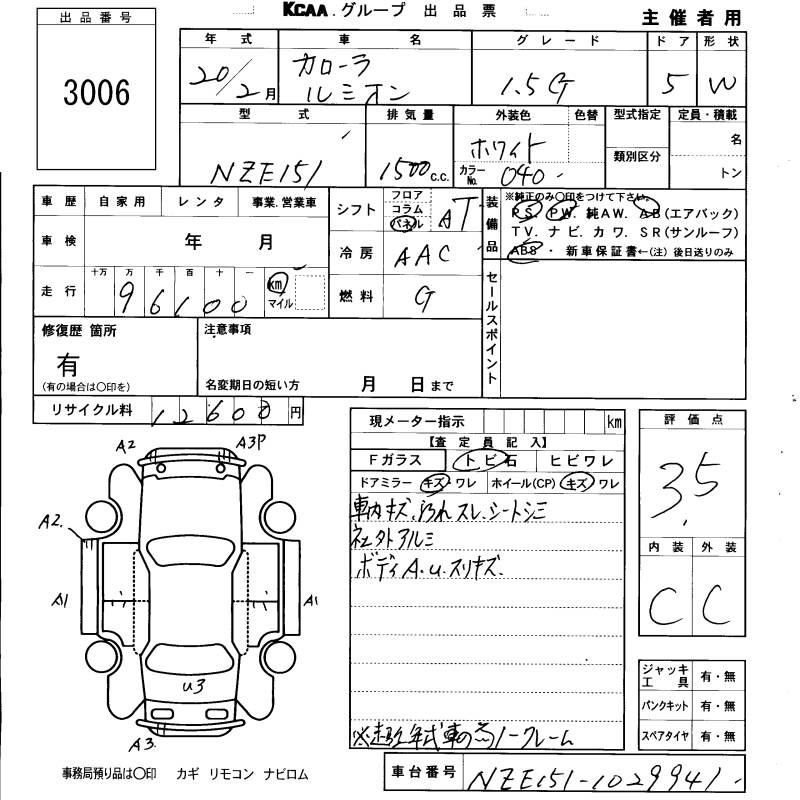 出品番号
3006
KCAA.グループ 出品票
主催者用
年式 車名 グレード ドア 形状
20/2月 カローラ ルミオン 1.5G 5 W
型式 排気量 外装色 色替 型式指定 定員・積載
NZE151 1500c.c. ホワイト カラーNo. 040 類別区分 名
トン
車歴 自家用 レンタ 事業.営業車
シフト フロア コラム パネル AT
装備品 ※純正のみ〇印をつけて下さい。
PS. PW. 純AW. AB(エアバック)
TV. ナビ. カワ. SR(サンルーフ)
ABS・新車保証書←(注)後日送りのみ
車検 年 月
冷房 AAC
走行 十万 万 千 百 十 一 km マイル
96100
燃料 G
セールスポイント
修復歴 箇所
有
(有の場合は〇印を)
注意事項
名変期日の短い方 月 日まで
リサイクル料 12600円
現メーター指示 km
【査定員記入】
Fガラス トビ石 ヒビワレ
ドアミラー キズ・ワレ ホイール(CP) キズ・ワレ
車内キズ.汚れスレ.シートシミ
社外アルミ
ボディA.u.スリキズ.
ノークレーム
評価点
3.5
内装 外装
C C
ジャッキ工具 有・無
パンクキット 有・無
スペアタイヤ 有・無
A2 A3P
A2.
A1 A1
u3
A3.
事務局預り品は〇印 カギ リモコン ナビロム
車台番号 NZE151-1029941